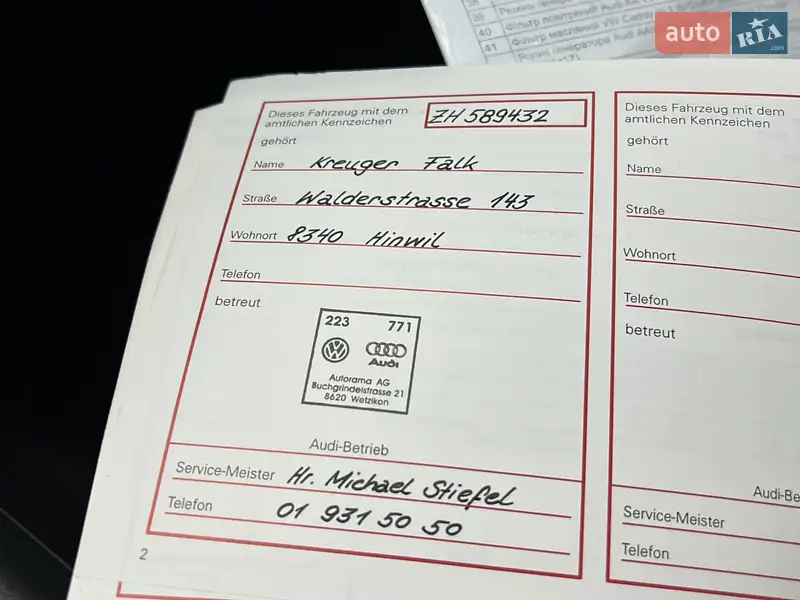 38
39 Ремни генера
40 Фільтр повітряний Audi
41 Фільтр масляний VW Caddy
Ролик генератора Audi A4
auto RIA .com
Dieses Fahrzeug mit dem
amtlichen Kennzeichen ZH 589432
gehört
Name Kreuger Falk
Straße Walderstrasse 143
Wohnort 8340 Hinwil
Telefon
betreut
223 771
Audi
Autorama AG
Buchgrindelstrasse 21
8620 Wetzikon
Audi-Betrieb
Service-Meister Hr. Michael Stiefel
Telefon 01 931 50 50
2
Dieses Fahrzeug mit dem
amtlichen Kennzeichen
gehört
Name
Straße
Wohnort
Telefon
betreut
Audi-Be
Service-Meister
Telefon